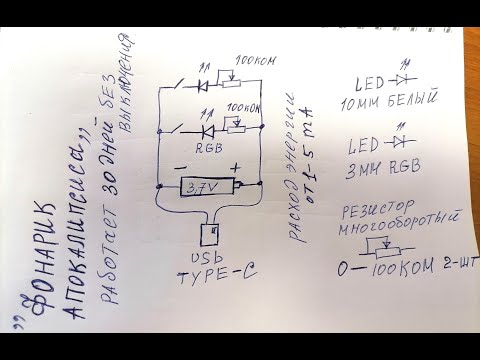 „ФОНАРИК
АПОКАЛИПСИСА”
РАБОТАЕТ 30 ДНЕЙ БЕЗ
ВЫКЛЮЧЕНИЯ
100КОМ
100КОМ
RGB
- +
3,7V
USb
TYPE-C
РАСХОД ЭНЕРГИИ
ОТ 1-5 mA
LED
10ММ БЕЛЫЙ
LED
3ММ RGB
РЕЗИСТОР
МНОГООБОРОТЫЙ
0-100КОМ 2-ШТ